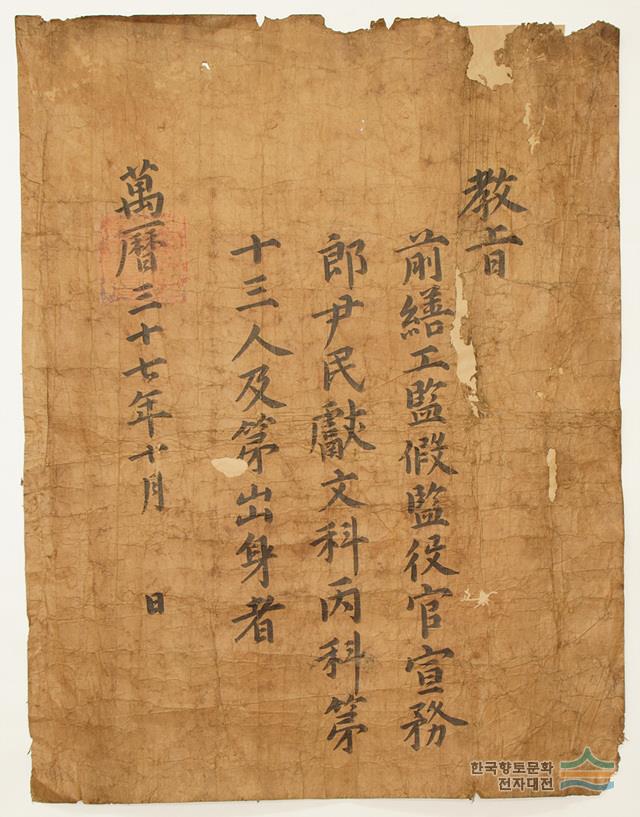 教旨
前繕工監假監役官宣務
郎尹民獻文科丙科第
十三人及第出身者
萬曆三十七年十月 日
한국향토문화
전자대전